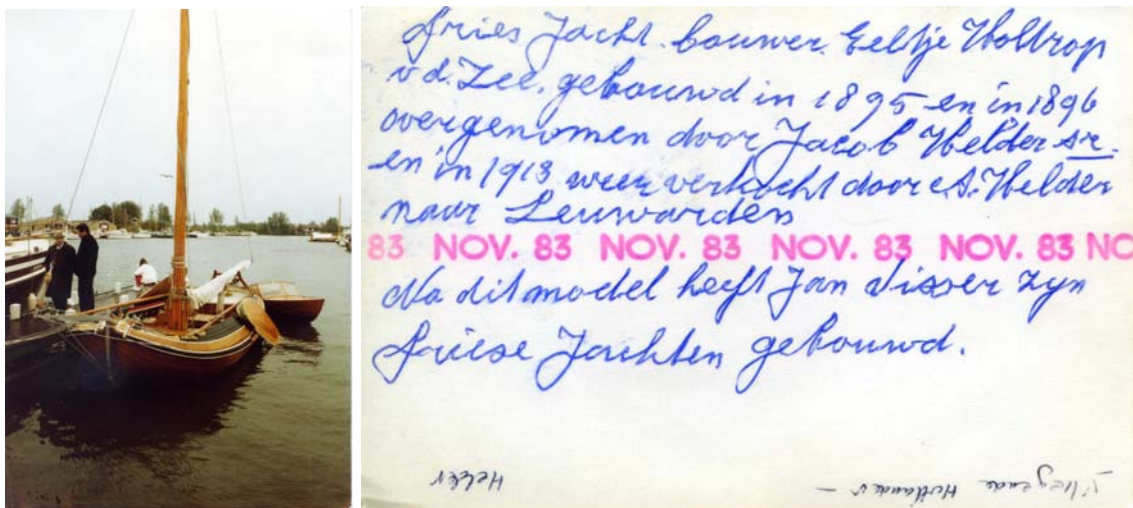 Fries Jacht. bouwer. Eeltje Holtrop
v.d. Zee. gebouwd in 1895 en in 1896
overgenomen door Jacob Helder sr.
en in 1913 weer verkocht door A. Helder
naar Leeuwarden
83 NOV. 83 NOV. 83 NOV. 83 NOV. 83 NO
Na dit model heeft Jan Visser zyn
Friese Jachten gebouwd.
Vliegende Hollander –
Helder